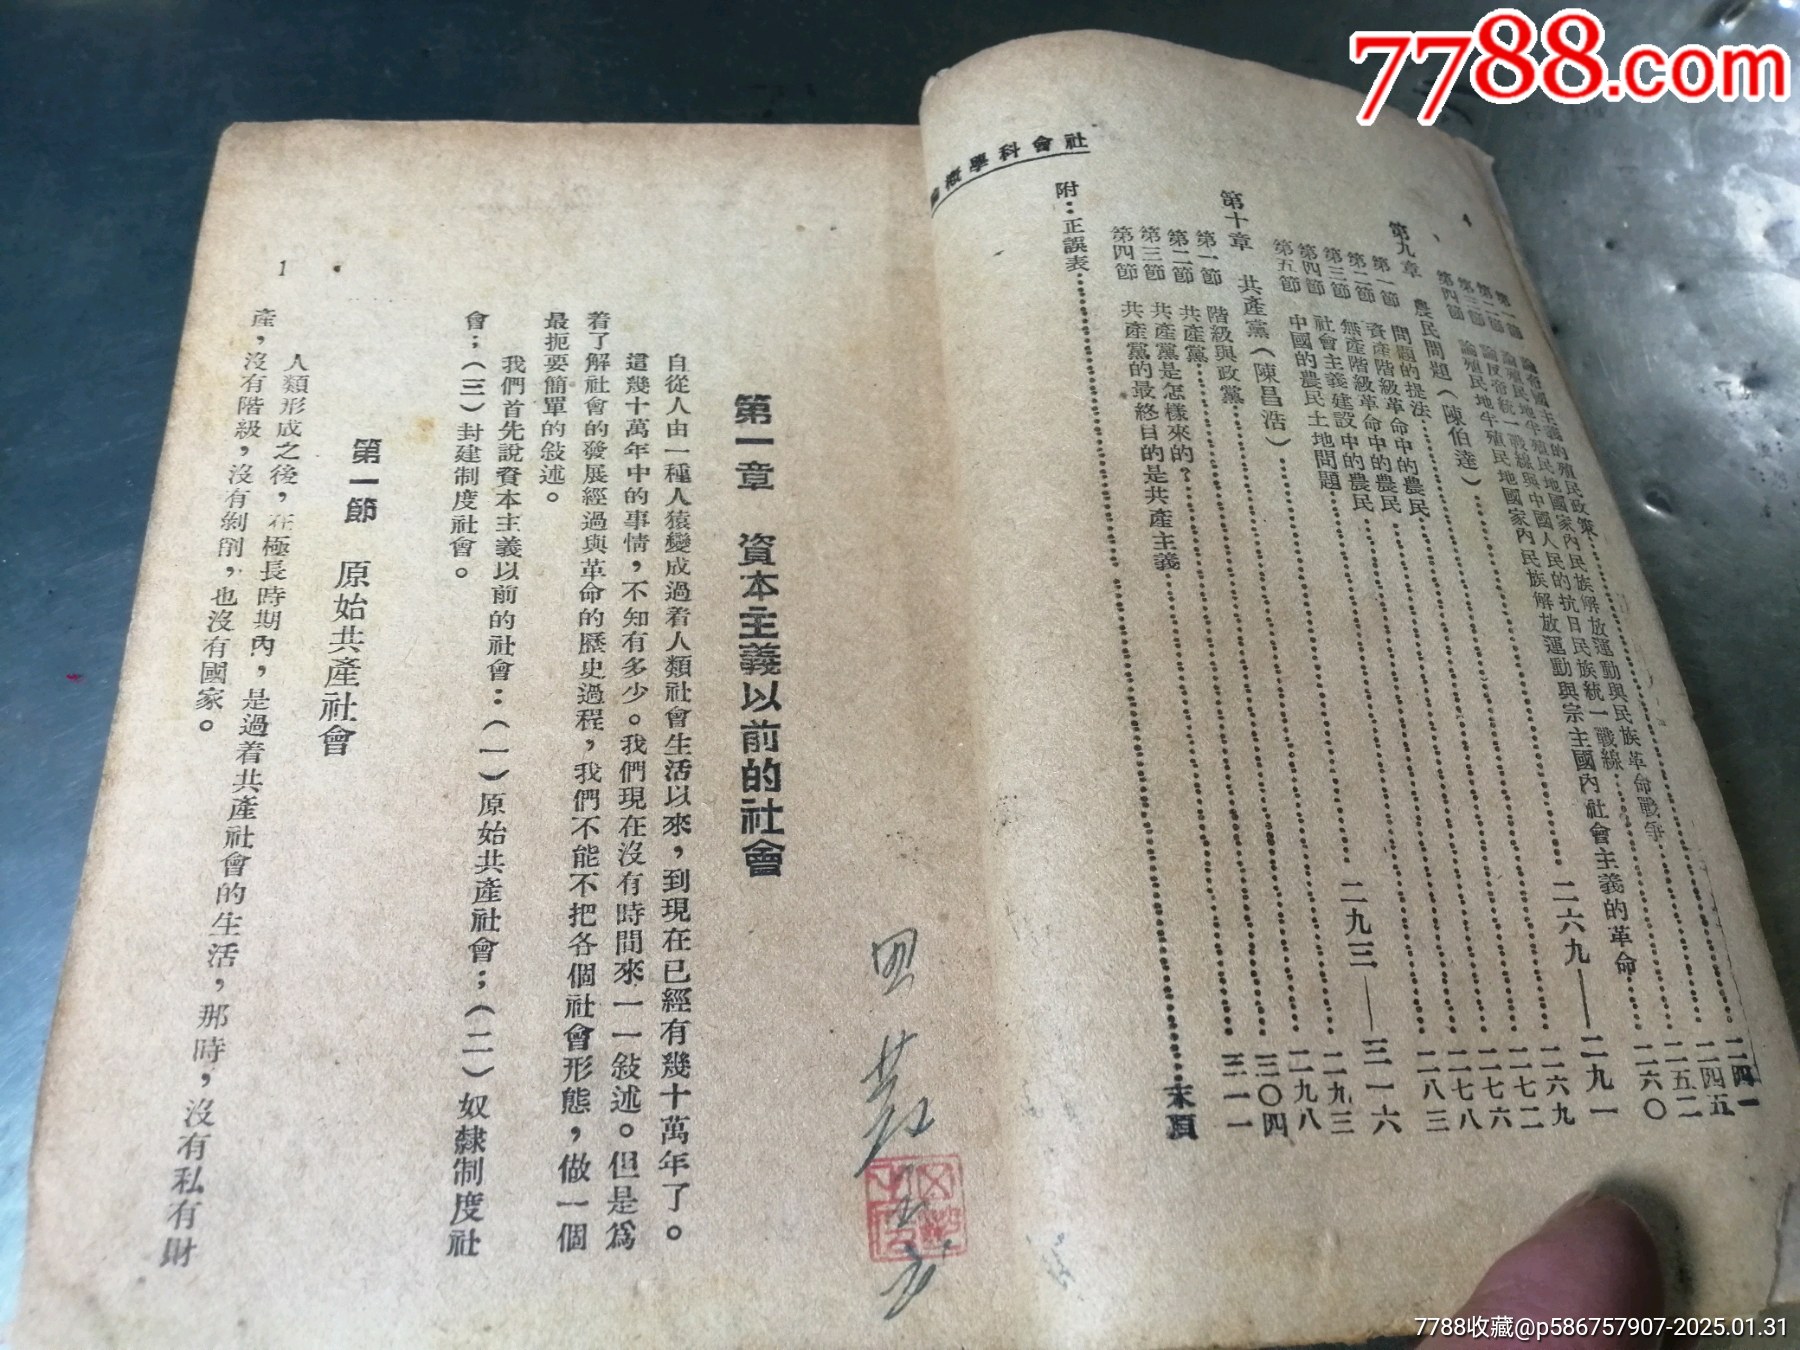 7788.com
社會科學概
4
第一節 論帝國主義的殖民政策……二四一
第二節 論殖民地半殖民地國家內民族解放運動與民族革命戰爭……二四五
第三節 論反帝統一戰線與中國人民的抗日民族統一戰線……二五二
第四節 論殖民地半殖民地國家內民族解放運動與宗主國內社會主義的革命……二六〇
第九章 農民問題(陳伯達)……二六九——二九一
第一節 問題的提法……二六九
第二節 資產階級革命中的農民……二七二
第三節 無產階級革命中的農民……二七六
第四節 社會主義建設中的農民……二七八
第五節 中國的農民土地問題……二八三
第十章 共產黨(陳昌浩)……二九三——三一六
第一節 階級與政黨……二九三
第二節 共產黨……二九八
第三節 共產黨是怎樣來的?……三〇四
第四節 共產黨的最終目的是共產主義……三一一
附:正誤表……末頁
第一章 資本主義以前的社會
自從人由一種人猿變成過着人類社會生活以來,到現在已經有幾十萬年了。
這幾十萬年中的事情,不知有多少。我們現在沒有時間來一一敍述。但是爲
着了解社會的發展經過與革命的歷史過程,我們不能不把各個社會形態,做一個
最扼要簡單的敍述。
我們首先說資本主義以前的社會:(一)原始共產社會;(二)奴隸制度社
會;(三)封建制度社會。
第一節 原始共產社會
人類形成之後,在極長時期內,是過着共產社會的生活,那時,沒有私有財
產,沒有階級,沒有剝削,也沒有國家。
1
7788收藏@p586757907-2025.01.31